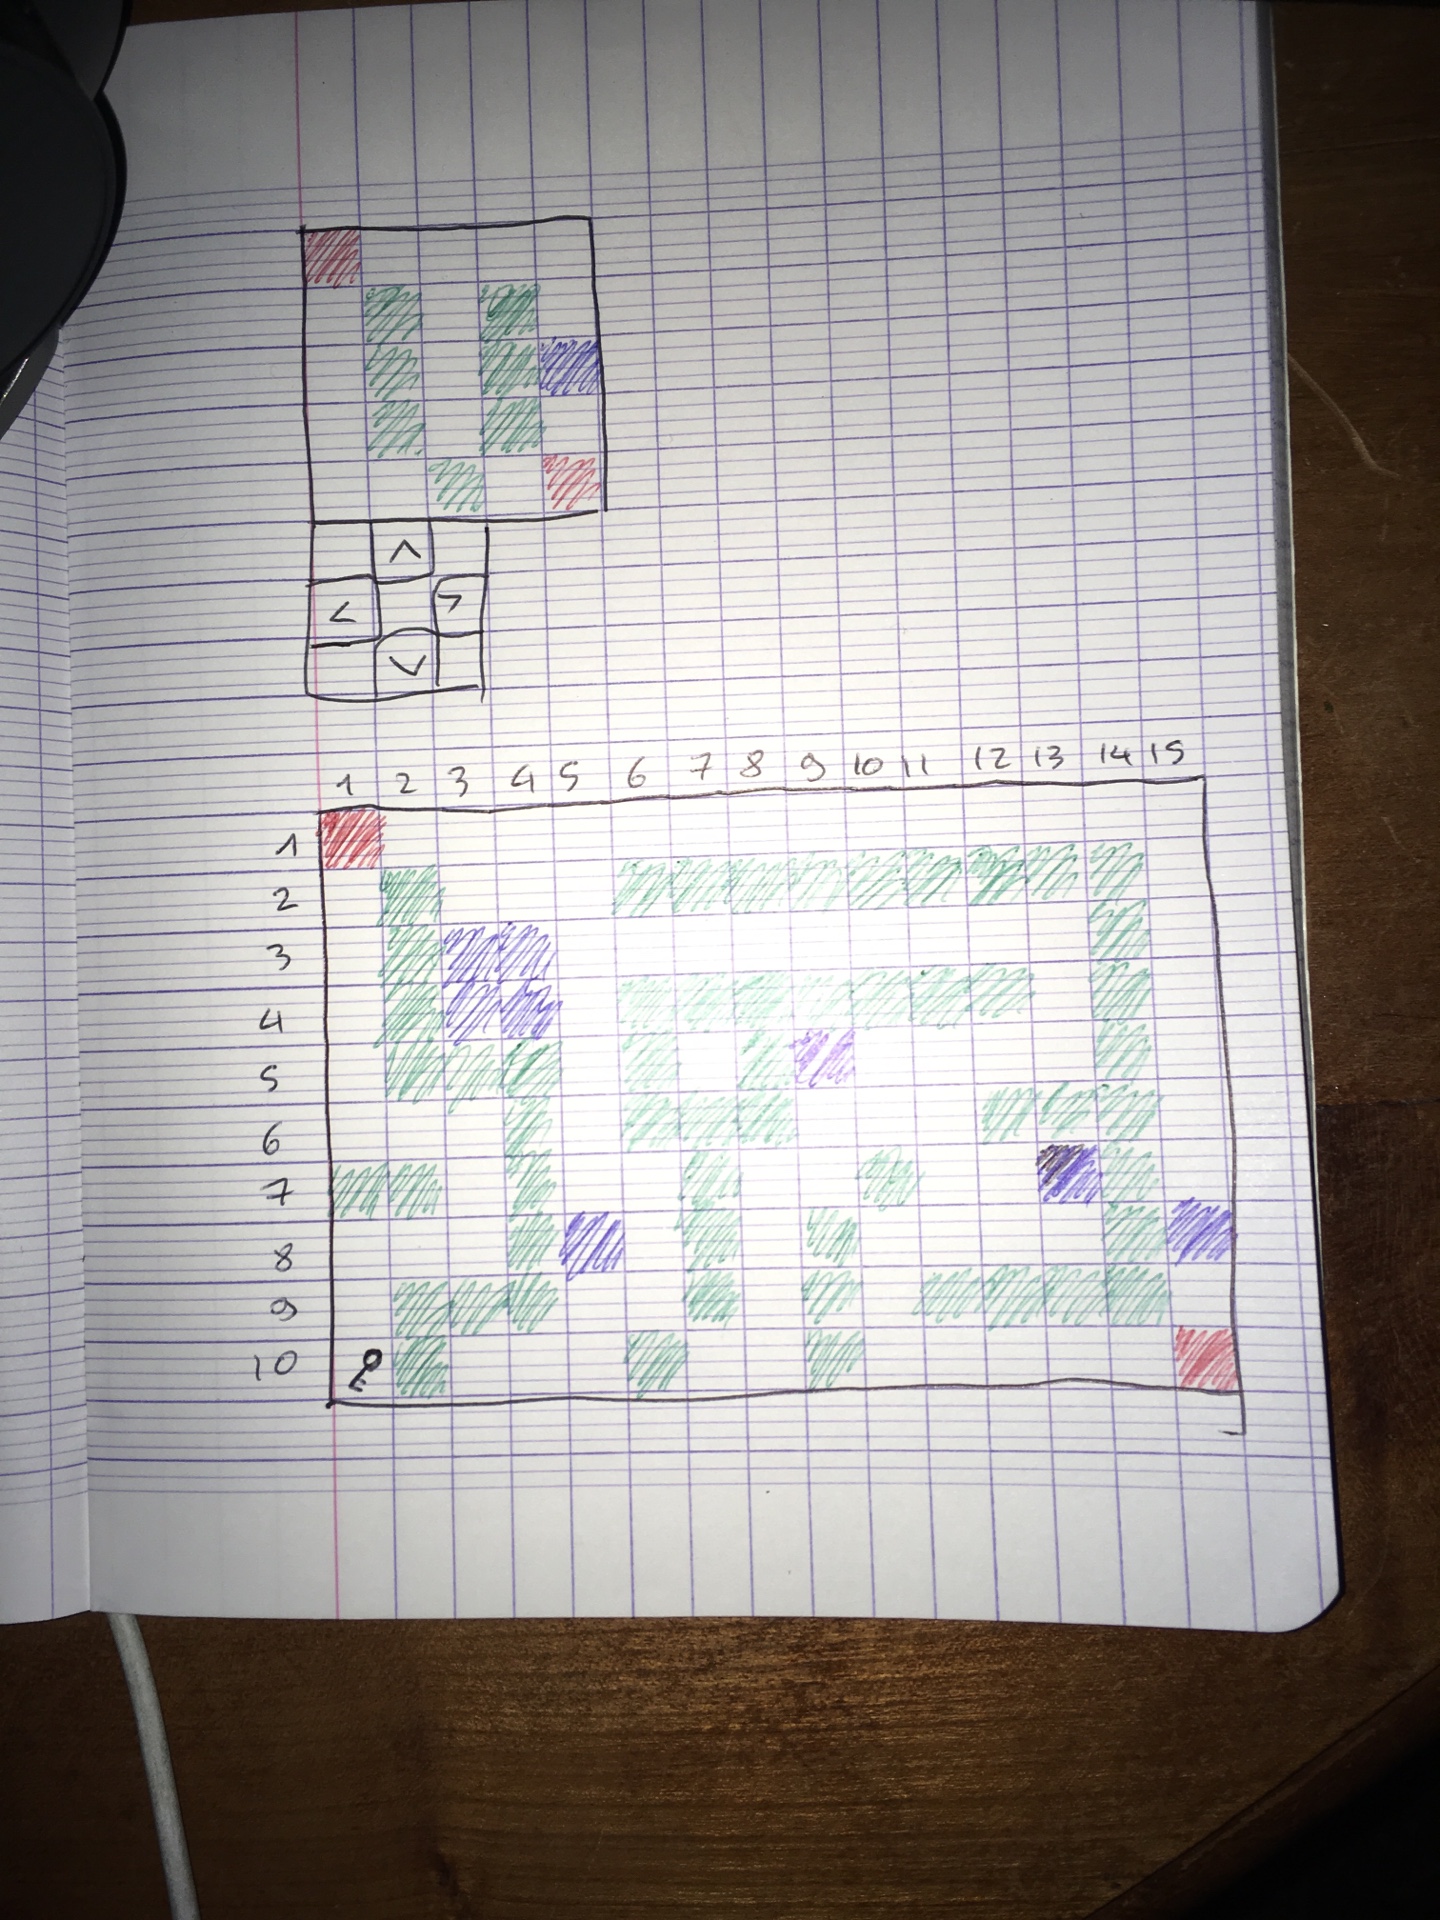 ^
< >
v
1 2 3 4 5 6 7 8 9 10 11 12 13 14 15
1
2
3
4
5
6
7
8
9
10